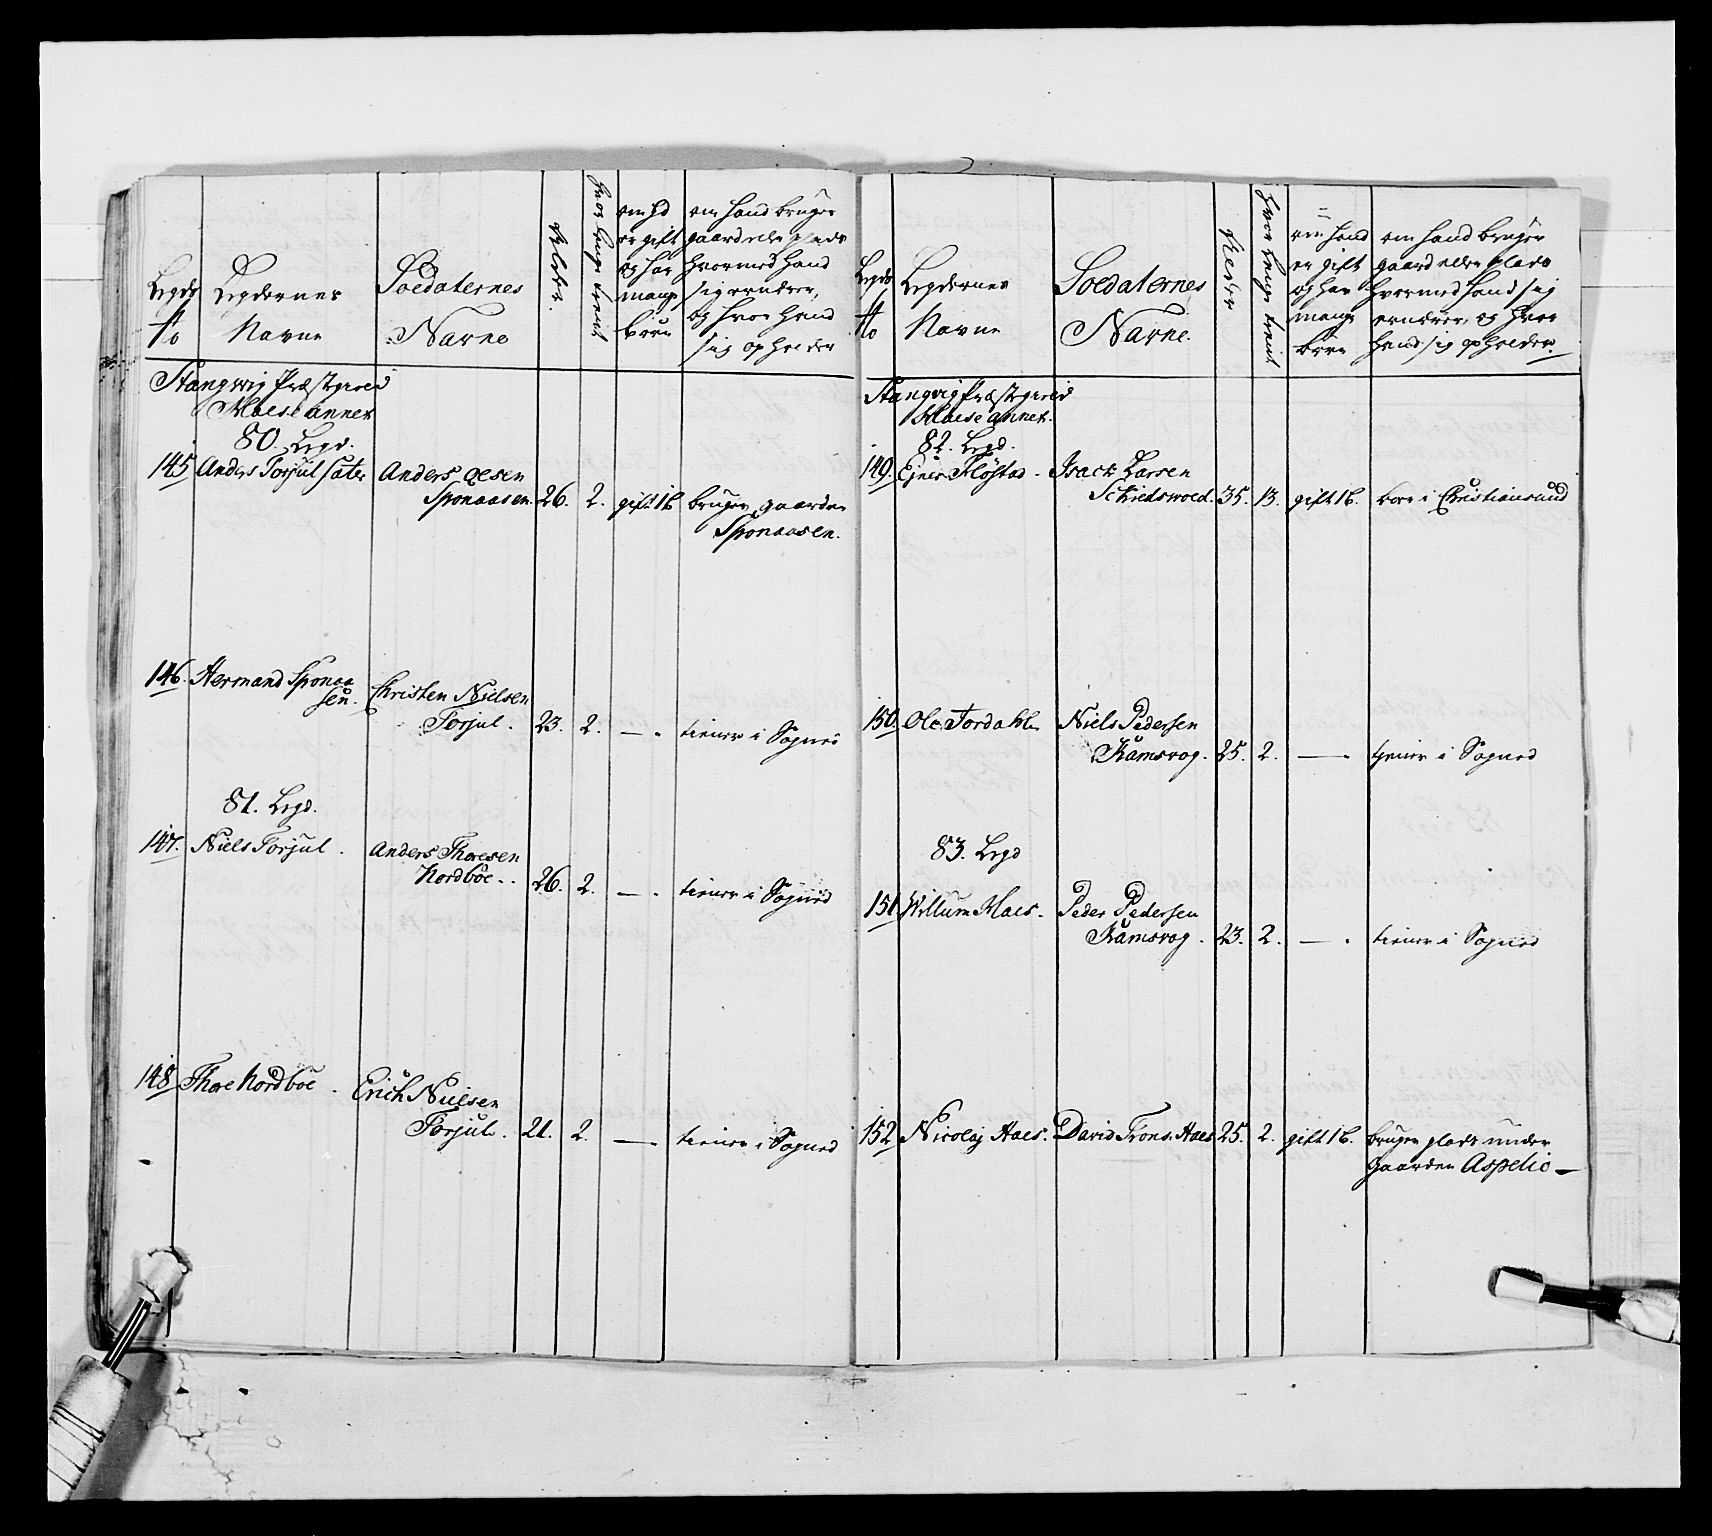 Legds
No
Legdernes
Navne
Soldaternes
Navne
Alder.
hvor lenge tient
om hd
er gift
og har
mange
børn
om hand bruger
gaard eller plads
hvormed hand
sig ernærer,
og hvor hand
sig opholder
Stangwig Præstgield
Aalse annex
80. Legd.
145 Anders Torjul sater Anders Olsen
Sponaasen. 26. 2. gift 1 b bruger gaarden
Sponaasen.
146. Hermand Sponaa
sen. Christen Nielsen
Torjul. 23. 2. — . tiener i Sognet
81. Legd.
147. Niels Torjul. Anders Thoresen
Nordbøe. 26. 2. — . tiener i Sogned
148 Thore Nordbøe. Erich Nielsen
Torjul. 21. 2. — . tiener i Sogned
Legds
No
Legdernes
Navne
Soldaternes
Navne.
Alder
hvor lenge tient
om hand
er gift
og har
mange
børn
om hand bruger
gaard eller plads
hvormed hand sig
ernærer, og hvor
hand sig opholder.
Stangvig Præstgield
Aalse annex.
82. Legd.
149. Ejner Fløstad. Isack Larsen
Schiedswold. 35. 13. gift 1 b. boer i Christiansund
150. Ole Fordahl Niels Pedersen
Ramsvog. 25. 2. — . tjener i Sogned
83. Legd
151. Willum Aaes. Peder Pedersen
Ramsvog. 23. 2. — . tiener i Sogned
152 Nicolaj Aaes. David Trons. Aaes 25. 2. gift 1 b. bruger plads under
gaarden Aspelie —